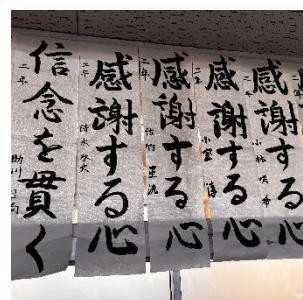 感謝する心
二年 小林
感謝する心
二年 小室
感謝する心
二年 佐竹
感謝する心
二年 清水
信念を貫く
二年 助川